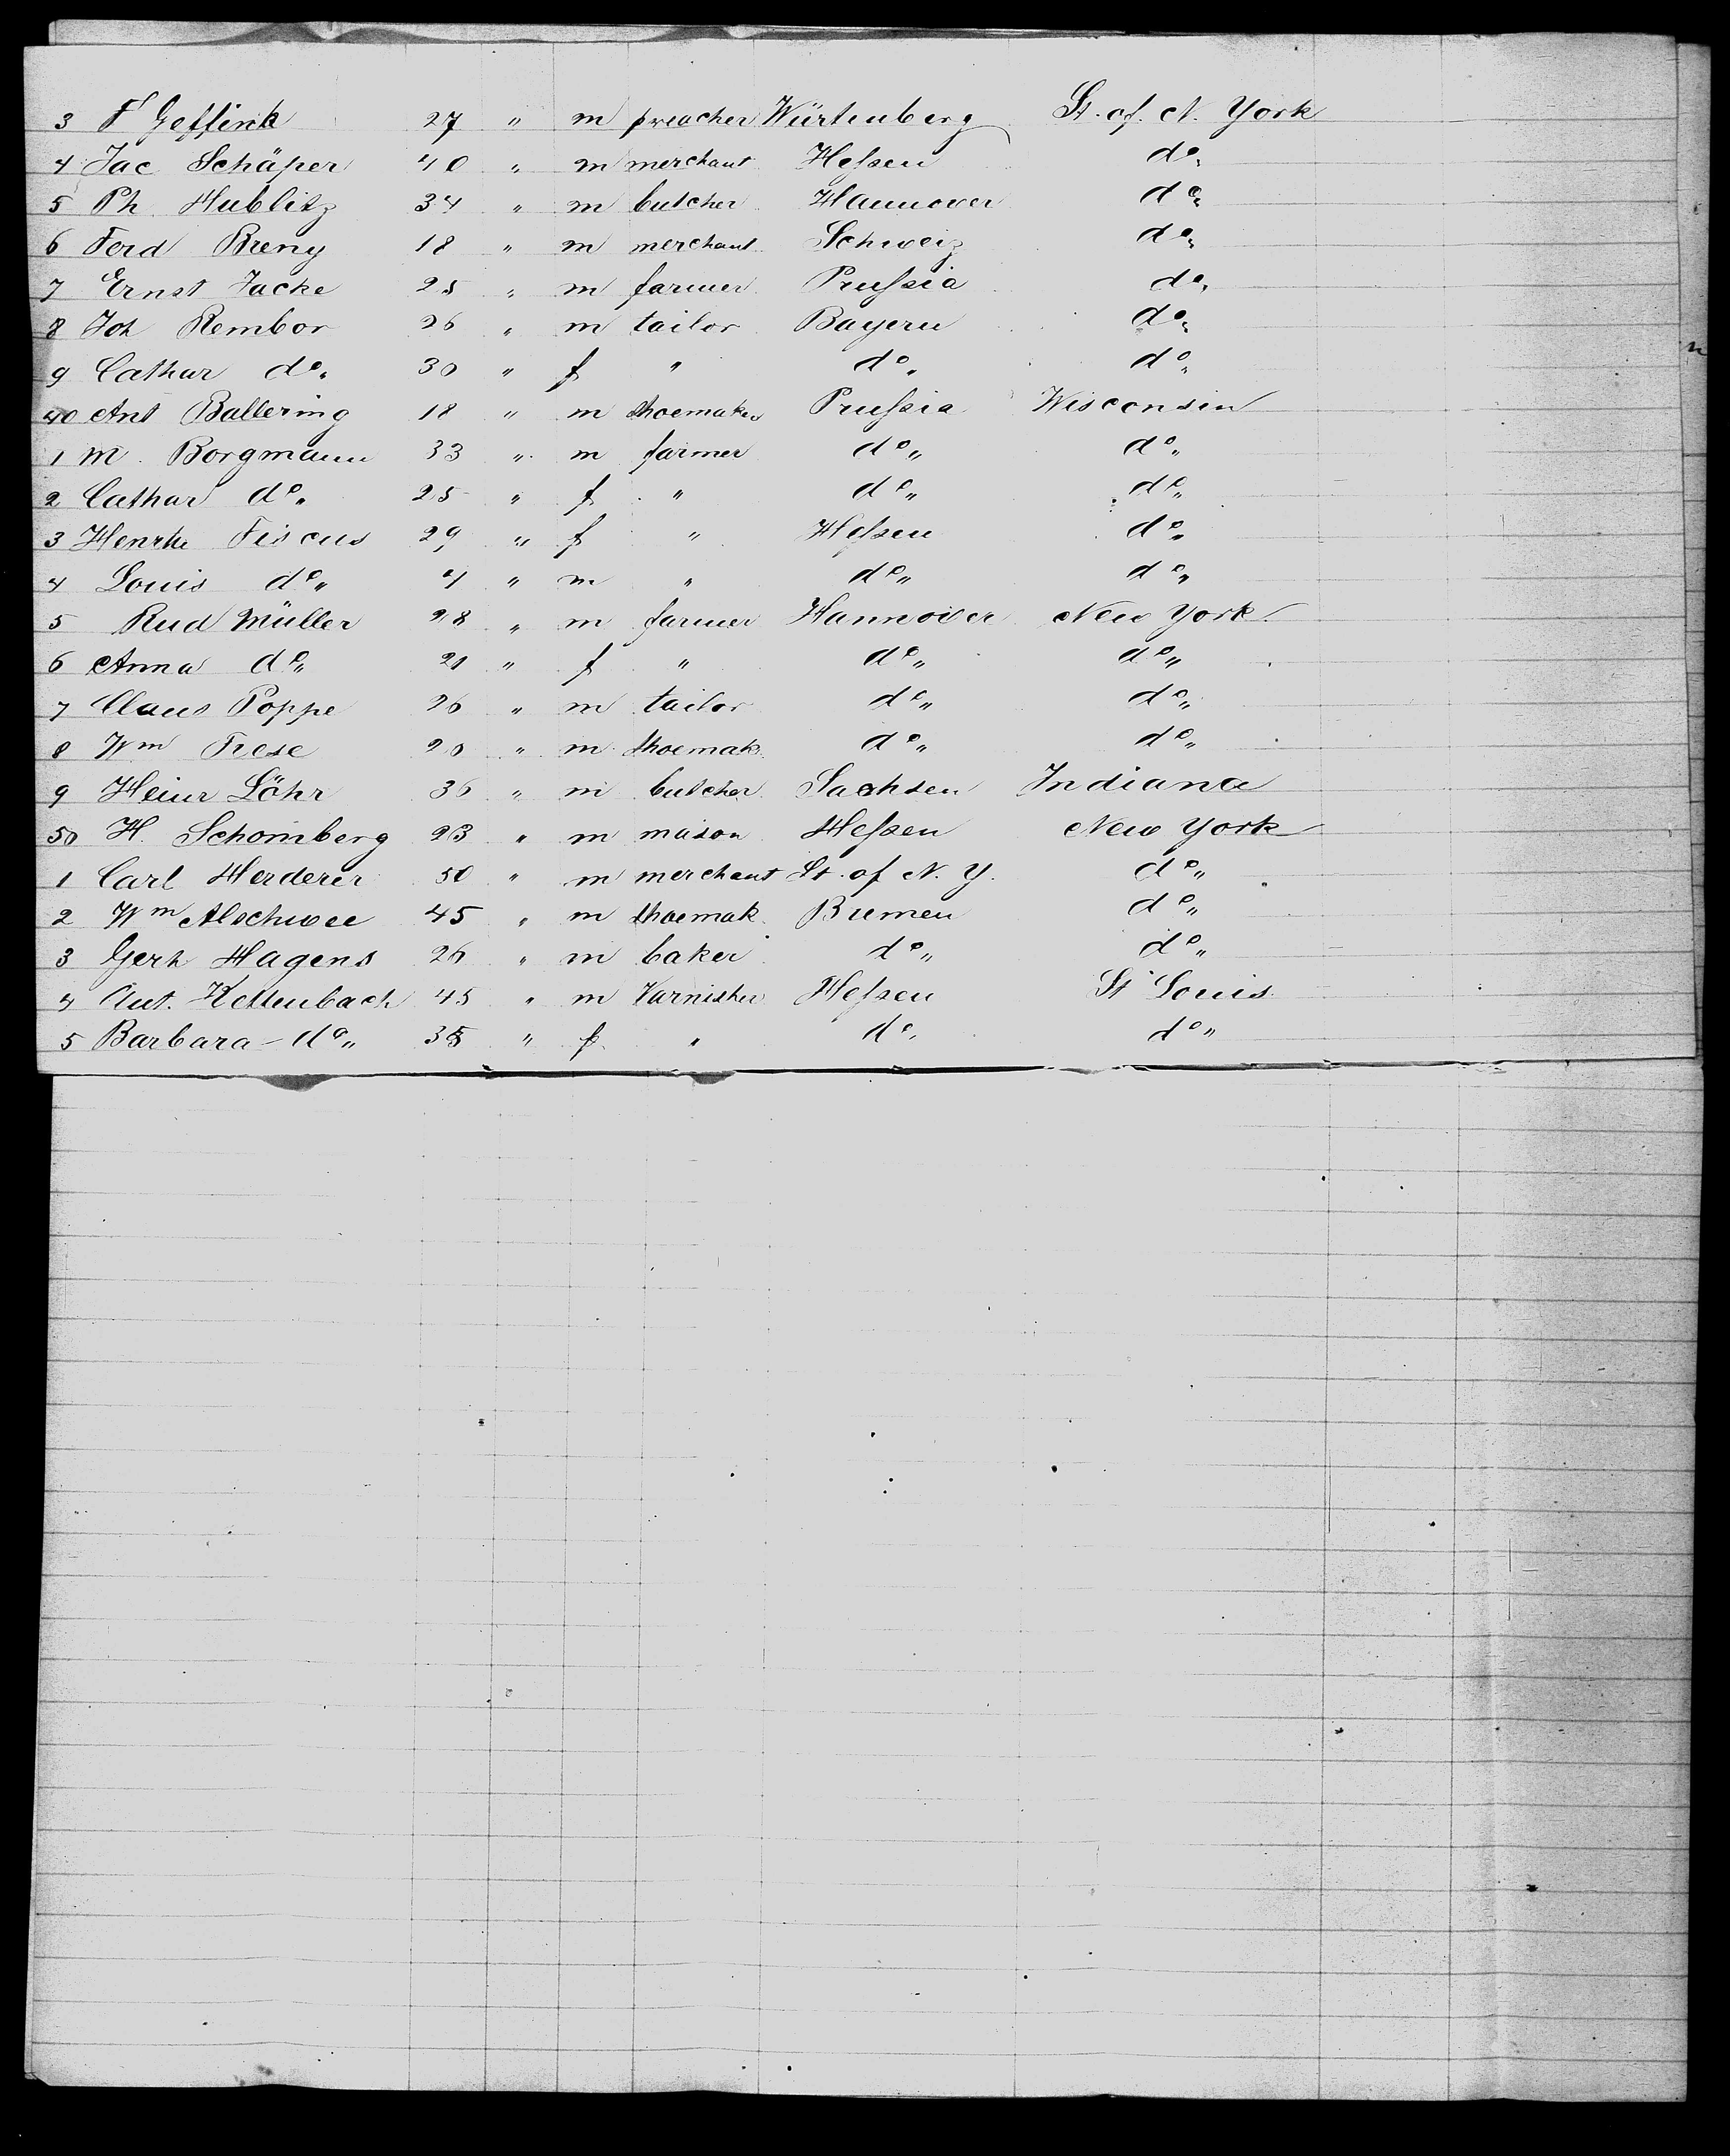 3 F Geffink 27 " m preacher Würtenberg St. of. N. York
4 Jac Schäfer 40 " m merchant Heſsen do,,
5 Ph. Hublitz 34 " m butcher Hannover do,,
6 Ferd Breny 18 " m merchant Schweiz do,,
7 Ernst Jacke 25 " m farmer Pruſsia do,,
8 Joh Rembor 26 " m tailor Bayern do,,
9 Cathar do,, 30 " f " do,, do,,
40 Ant Ballering 18 " m shoemaker Pruſsia Wisconsin
1 M. Borgmann 33 " m farmer do,, do,,
2 Cathar do,, 25 " f " do,, do,,
3 Henrtte Fiscus 29 " f " Heſsen do,,
4 Louis do,, " m " do,, do,,
5 Rud Müller 28 " m farmer Hannover New York.
6 Anna do,, 21 " f " do,, do,,
7 Claus Poppe 26 " m tailor do,, do,,
8 Wm Frese 20 " m shoemak. do,, do,,
9 Heinr Löhr 36 " m butcher Sachsen Indiana
50 H. Schomberg 23 " m mason Heſsen New York
1 Carl Herderer 50 " m merchant St. of N. Y. do,,
2 Wm Alschwee 45 " m shoemak. Bremen do,,
3 Gerh Hagens 26 " m baker do,, do,,
4 Ant. Kettenbach 45 " m Varnisher Heſsen St Louis
5 Barbara do,, 35 " f " do, do,,